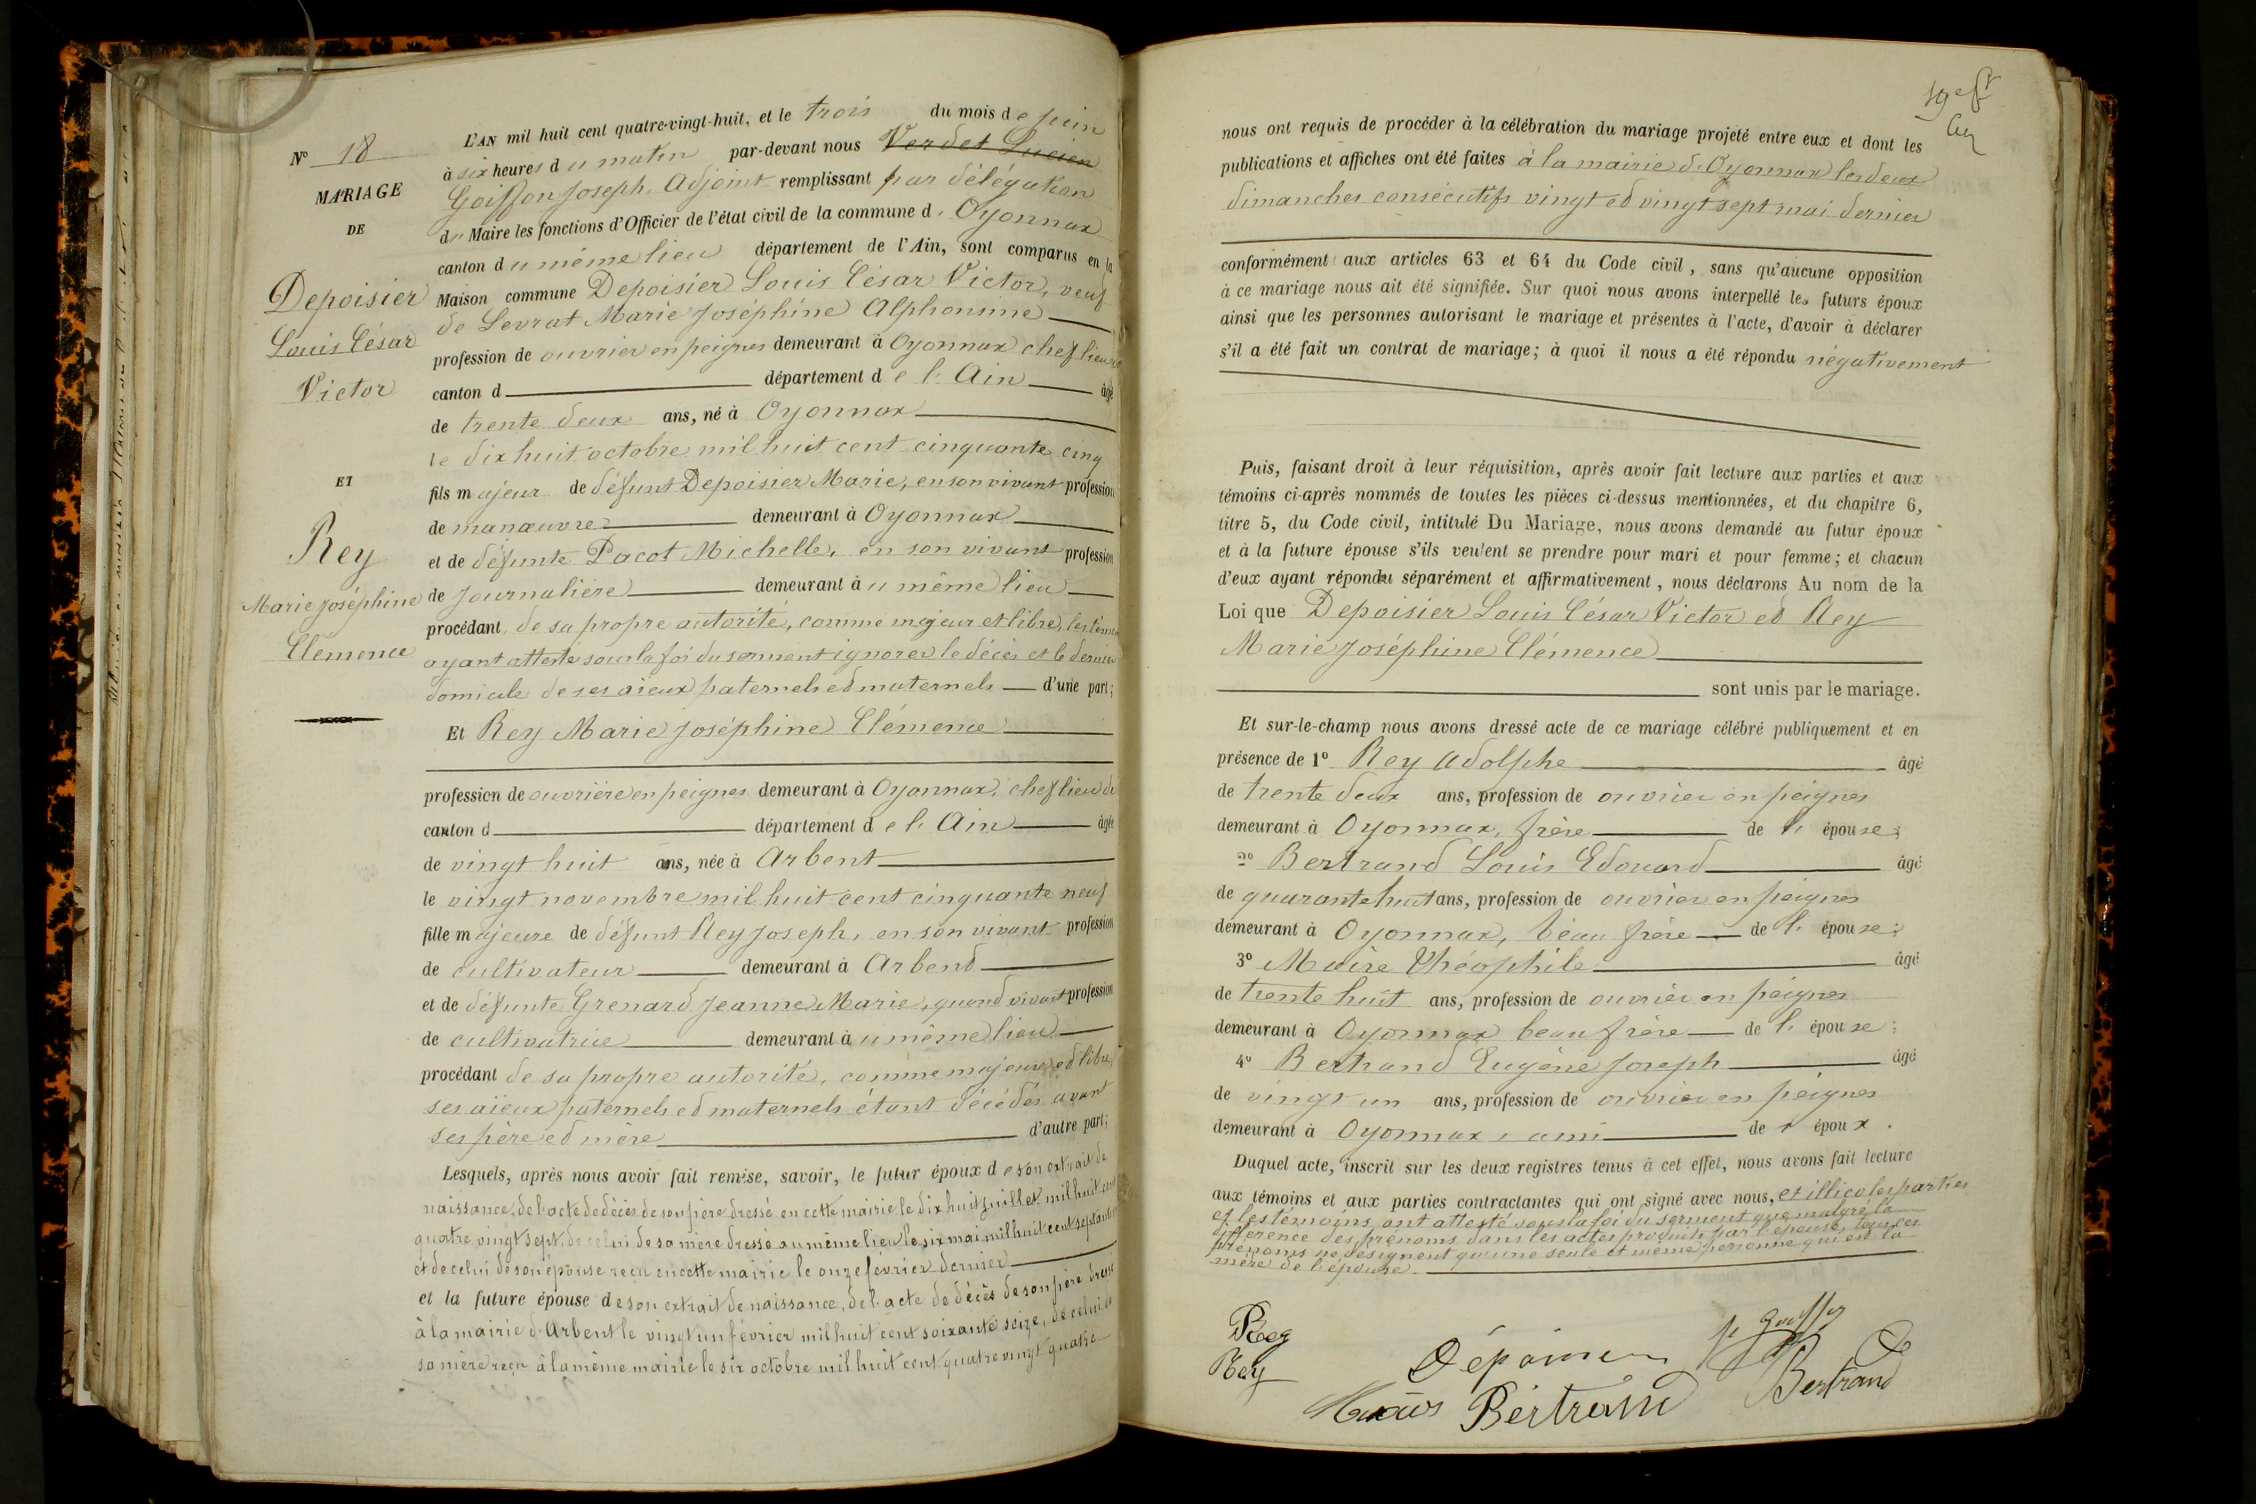 N° 18
MARIAGE
DE
Depoisier
Louis César
Victor
ET
Rey
Marie Joséphine
Clémence
L'AN mil huit cent quatre-vingt-huit, et le trois du mois de juin
à six heures du matin par-devant nous Verdet Lucien
Goiffon Joseph, Adjoint remplissant par délégation
du Maire les fonctions d'Officier de l'état civil de la commune d'Oyonnax
canton du même lieu département de l'Ain, sont comparus en la
Maison commune Depoisier Louis César Victor, veuf
de Levrat Marie Joséphine Alphonsine
profession de ouvrier en peignes demeurant à Oyonnax chef lieu de
canton d département de l'Ain âgé
de trente deux ans, né à Oyonnax
le dix huit octobre mil huit cent cinquante cinq
fils majeur de défunt Depoisier Marie, en son vivant profession
de manœuvre demeurant à Oyonnax
et de défunte Pacot Michelle, en son vivant profession
de journalière demeurant au même lieu
procédant de sa propre autorité, comme majeur et libre, les témoins
ayant attesté sous la foi du serment ignorer le décès et le dernier
domicile de ses aïeux paternels et maternels d'une part;
Et Rey Marie Joséphine Clémence
profession de ouvrière en peignes demeurant à Oyonnax, chef lieu de
canton d département de l'Ain âgée
de vingt huit ans, née à Arbent
le vingt novembre mil huit cent cinquante neuf
fille majeure de défunt Rey Joseph, en son vivant profession
de cultivateur demeurant à Arbent
et de défunte Grenard Jeanne Marie, quand vivait profession
de cultivatrice demeurant au même lieu
procédant de sa propre autorité, comme majeure et libre,
ses aïeux paternels et maternels étant décédés avant
ses père et mère d'autre part;
Lesquels, après nous avoir fait remise, savoir, le futur époux de son extrait de
naissance, de l'acte de décès de son père dressé en cette mairie le dix huit juillet mil huit cent
quatre vingt sept, de celui de sa mère dressé au même lieu le six mai mil huit cent septante
et de celui de son épouse reçu en cette mairie le onze février dernier
et la future épouse de son extrait de naissance, de l'acte de décès de son père dressé
à la mairie d'Arbent le vingt un février mil huit cent soixante seize, de celui de
sa mère reçu à la même mairie le six octobre mil huit cent quatre vingt quatre
nous ont requis de procéder à la célébration du mariage projeté entre eux et dont les
publications et affiches ont été faites à la mairie d'Oyonnax les deux
dimanches consécutifs vingt et vingt sept mai dernier
conformément aux articles 63 et 64 du Code civil, sans qu'aucune opposition
à ce mariage nous ait été signifiée. Sur quoi nous avons interpellé les futurs époux
ainsi que les personnes autorisant le mariage et présentes à l'acte, d'avoir à déclarer
s'il a été fait un contrat de mariage; à quoi il nous a été répondu négativement
Puis, faisant droit à leur réquisition, après avoir fait lecture aux parties et aux
témoins ci-après nommés de toutes les pièces ci-dessus mentionnées, et du chapitre 6,
titre 5, du Code civil, intitulé Du Mariage, nous avons demandé au futur époux
et à la future épouse s'ils veulent se prendre pour mari et pour femme; et chacun
d'eux ayant répondu séparément et affirmativement, nous déclarons Au nom de la
Loi que Depoisier Louis César Victor et Rey
Marie Joséphine Clémence
sont unis par le mariage.
Et sur-le-champ nous avons dressé acte de ce mariage célébré publiquement et en
présence de 1° Rey Adolphe âgé
de trente deux ans, profession de ouvrier en peignes
demeurant à Oyonnax, frère de l'épouse;
2° Bertrand Louis Edouard âgé
de quarante huit ans, profession de ouvrier en peignes
demeurant à Oyonnax, beau frère de l'épouse;
3° Maire Théophile âgé
de trente huit ans, profession de ouvrier en peignes
demeurant à Oyonnax beau frère de l'épouse;
4° Bertrand Eugène Joseph âgé
de vingt un ans, profession de ouvrier en peignes
demeurant à Oyonnax, ami de l'époux.
Duquel acte, inscrit sur les deux registres tenus à cet effet, nous avons fait lecture
aux témoins et aux parties contractantes qui ont signé avec nous, et illico les parties
et les témoins ont attesté sous la foi du serment que malgré la
différence des prénoms dans les actes produits par l'épouse, tous ces
prénoms ne désignent qu'une seule et même personne qui est la
mère de l'épouse.
Rey
Rey
Bertrand
Bertrand